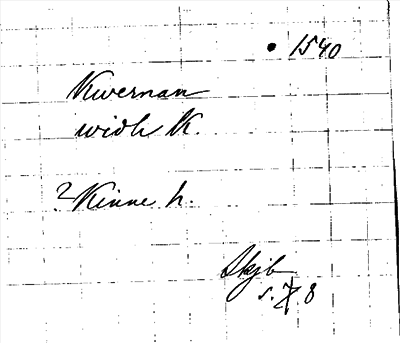 • 1540
Kwernan
widh K.
? Kinne h.
Skjb
s. 8